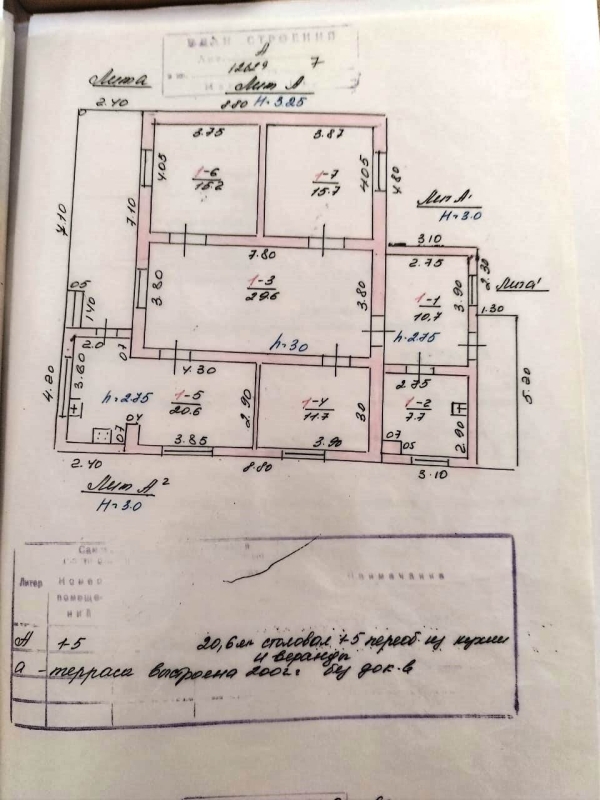 ПЛАН СТРОЕНИЙ
А
7
Лит а
Лит А
2.40
8.80 H=3.25
3.75
3.87
4.05
1-6
15.2
1-7
15.7
4.05
4.80
Лит А'
H=3.0
7.10
7.10
3.10
7.80
2.75
2.30
3.80
1-3
29.6
3.80
1-1
10,7
3.90
Лит а'
1.30
05
1.40
h=3.0
h=2.75
2.0
07
4.30
4.20
3.80
h=2.75
1-5
20.6
2.90
1-4
11.7
30
2.75
1-2
7.7
2.90
5.20
04
07
3.85
3.90
07
05
2.40
8.80
3.10
Лит А²
H=3.0
Литер
Номер
помеще-
ний
Примечание
А +5 20,6 м столовая +5 переоб из кухни
и веранды
а - терраса выстроена 2002г без док-в